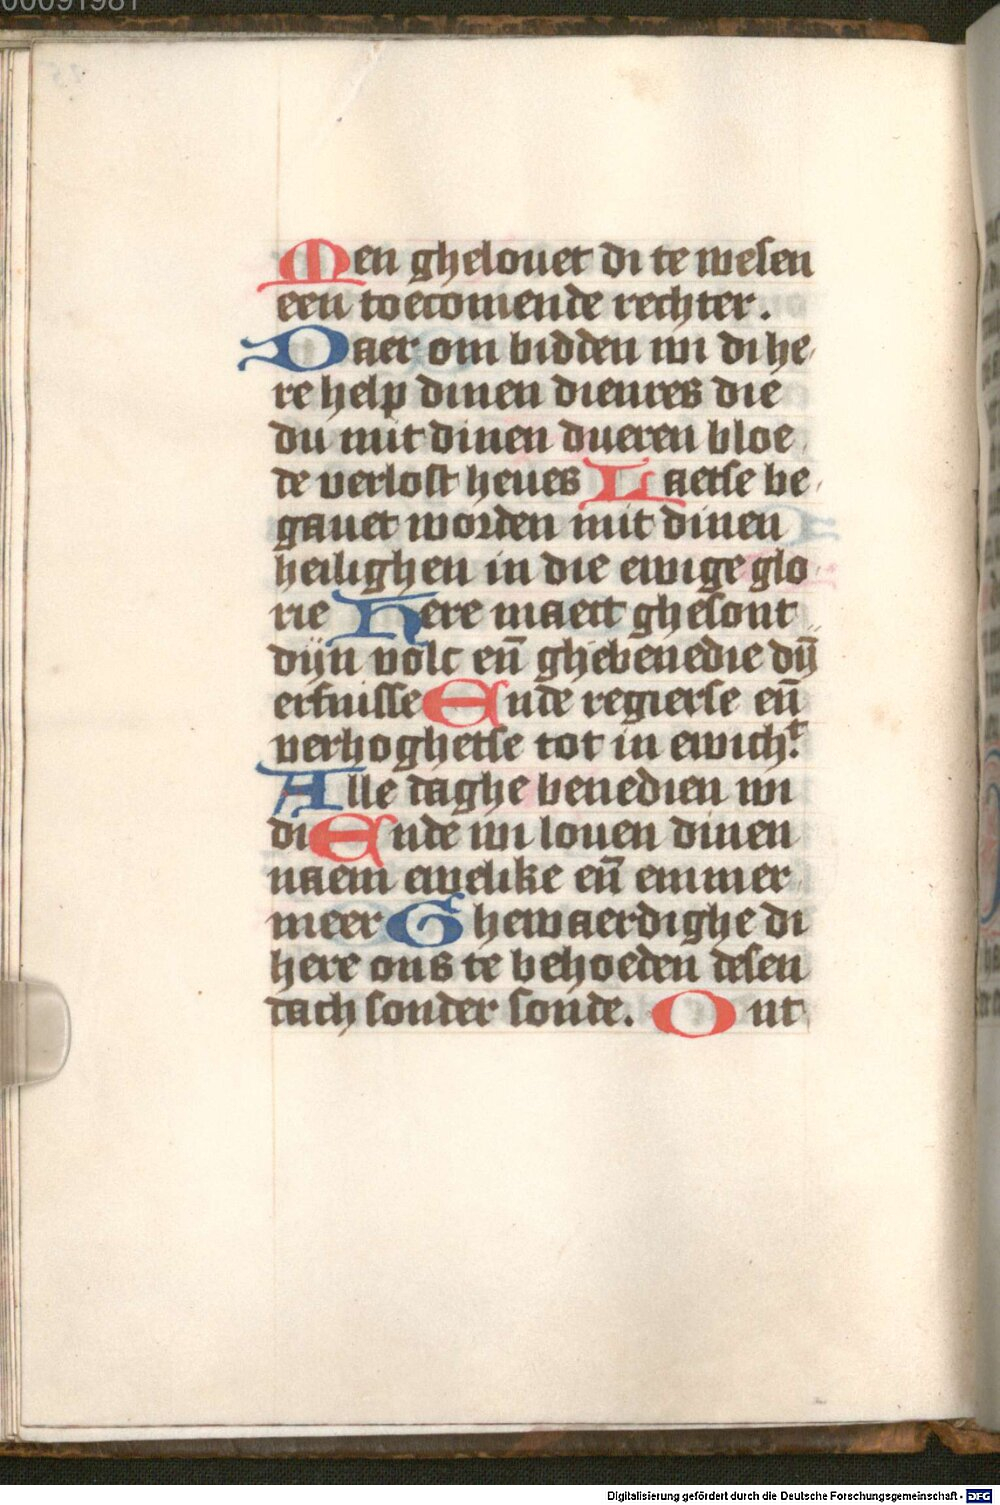 00091981
Men ghelouet di te wesen
een toecomende rechter.
Daer om bidden wi di he
re help dinen dienres die
du mit dinen dueren bloe
de verlost heues Laetse be
gauet worden mit dinen
heilighen in die ewige glo
rie Here maect ghesont
dijn volc eñ ghebenedie dij̄
erfnisse Ende regierse eñ
verhoghetse tot in ewich.t
Alle daghe benedien wi
di Ende wi louen dinen
naem ewelike eñ emmer
meer Ghewaerdighe di
here ons te behoeden desen
dach sonder sonde. Ont
Digitalisierung gefördert durch die Deutsche Forschungsgemeinschaft - DFG